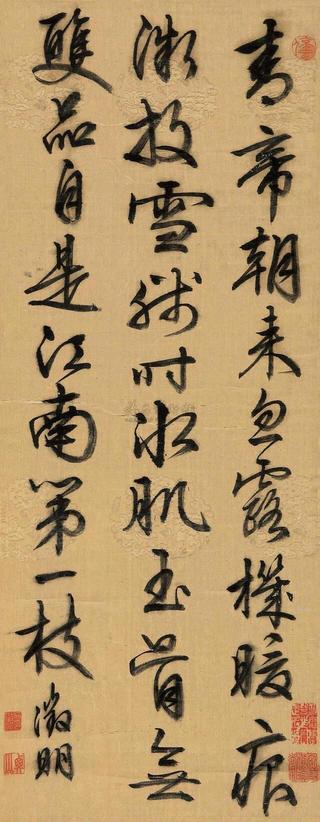 青帝朝来忽露機暖痕
微放雪殘时冰肌玉骨無
雙品自是江南第一枝
徵明